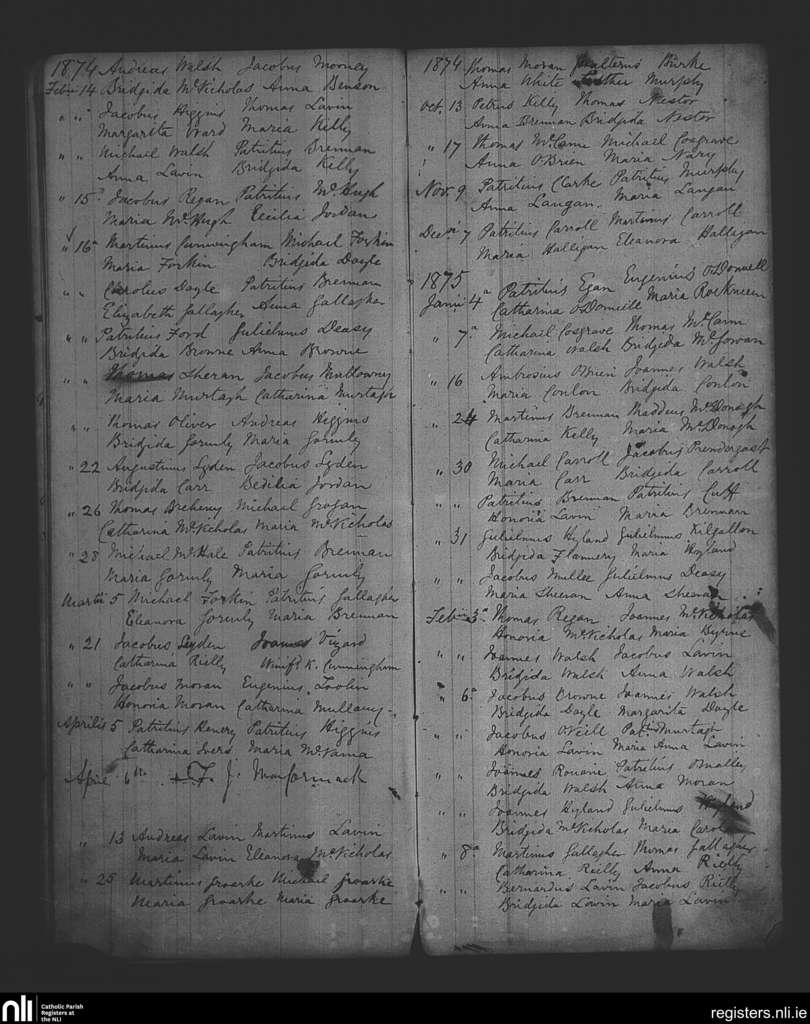 1874 Andreas Walsh Jacobus Mooney
Febii 14 Bridgida McNicholas Anna Benson
" " Jacobus Higgins Thomas Lavin
Margarita Ward Maria Kelly
" " Michael Walsh Patritius Brennan
Anna Lavin Bridgida Kelly
" 15a Jacobus Regan Patritius McHugh
Maria McHugh Cecilia Jordan
" 16a Martinus Cunningham Michael Forkin
Maria Forkin Bridgida Doyle
" " Carolus Doyle Patritius Brennan
Elizabeth Gallagher Anna Gallagher
" " Patritius Ford Gulielmus Deasy
Bridgida Browne Anna Browne
" " Thomas Sheran Jacobus Mullowny
Maria Murtagh Catharina Murtagh
" " Thomas Oliver Andreas Higgins
Bridgida Gormly Maria Gormly
" 22 Augustinus Lyden Jacobus Lyden
Bridgida Carr Bedilia Jordan
" 26 Thomas Breheny Michael Grogan
Catharina McNicholas Maria McNicholas
" 28 Michael McHale Patritius Brennan
Maria Gormly Maria Gormly
Martii 5 Michael Forkin Patritius Gallagher
Eleanora Gormly Maria Brennan
" 21 Jacobus Lyden Joannes Vizard
Catharina Rielly Winifd K. Cunningham
" " Jacobus Moran Eugenius
Honoria Moran Catharina Mullany
Aprilis 5 Patritius Patritius Higgins
Catharina Maria McNama
April 6th + F. J. MacCormack
" 13 Andreas Lavin Martinus Lavin
Maria Lavin Eleanora McNicholas
" 25 Martinus Groarke Michael Groarke
Maria Groarke Maria Groarke
1874 Thomas Moran Gualterus Burke
Anna White Esther Murphy
Oct. 13 Petrus Kelly Thomas Nestor
Anna Brennan Bridgida Nestor
" 17 Thomas McCann Michael Cosgrave
Anna O'Brien Maria Nary
Nov. 9 Patritius Clarke Patritius Murphy
Anna Langan. Maria Langan
Decii 7 Patritius Carroll Martinus Carroll
Maria Halligan Eleanora Halligan
1875
Janii 4a Patritius Egan Eugenius O'Donnell
Catharina O'Donnell Maria
" 7a Michael Cosgrave Thomas McCann
Catharina Walsh Bridgida McGowan
" 16 Ambrosius O'Brien Joannes Walsh
Maria Conlon Bridgida Conlon
" 24 Martinus Brennan Maddeus McDonagh
Catharina Kelly Maria McDonagh
" 30 Michael Carroll Jacobus Prendergast
Maria Carr Bridgida Carroll
" " Patritius Brennan Patritius Cuff
Honoria Lavin Maria Brennan
" 31 Gulielmus Hyland Gulielmus Kilgallon
Bridgida Flannery Maria Hyland
" " Jacobus Mullee Gulielmus Deasy
Maria Sheran Anna Sheran
Febii 3a Thomas Regan Joannes McNicholas
Honoria McNicholas Maria Byrne
" " Joannes Walsh Jacobus Lavin
Bridgida Walsh Anna Walsh
" 6a Jacobus Browne Joannes Walsh
Bridgida Doyle Margarita Doyle
" " Jacobus O'Neill Pats Murtagh
Honoria Lavin Maria Anna Lavin
" " Joannes Rouane Patritius O'Malley
Bridgida Walsh Anna Moran
" " Joannes Hyland Gulielmus Hyland
Bridgida McNicholas Maria
" 8a Martinus Gallagher Thomas Gallagher
Catharina Rielly Anna Rielly
" " Bernardus Lavin Jacobus Rielly
Bridgida Lavin Maria Lavin
nli
Catholic Parish
Registers at
the NLI
registers.nli.ie